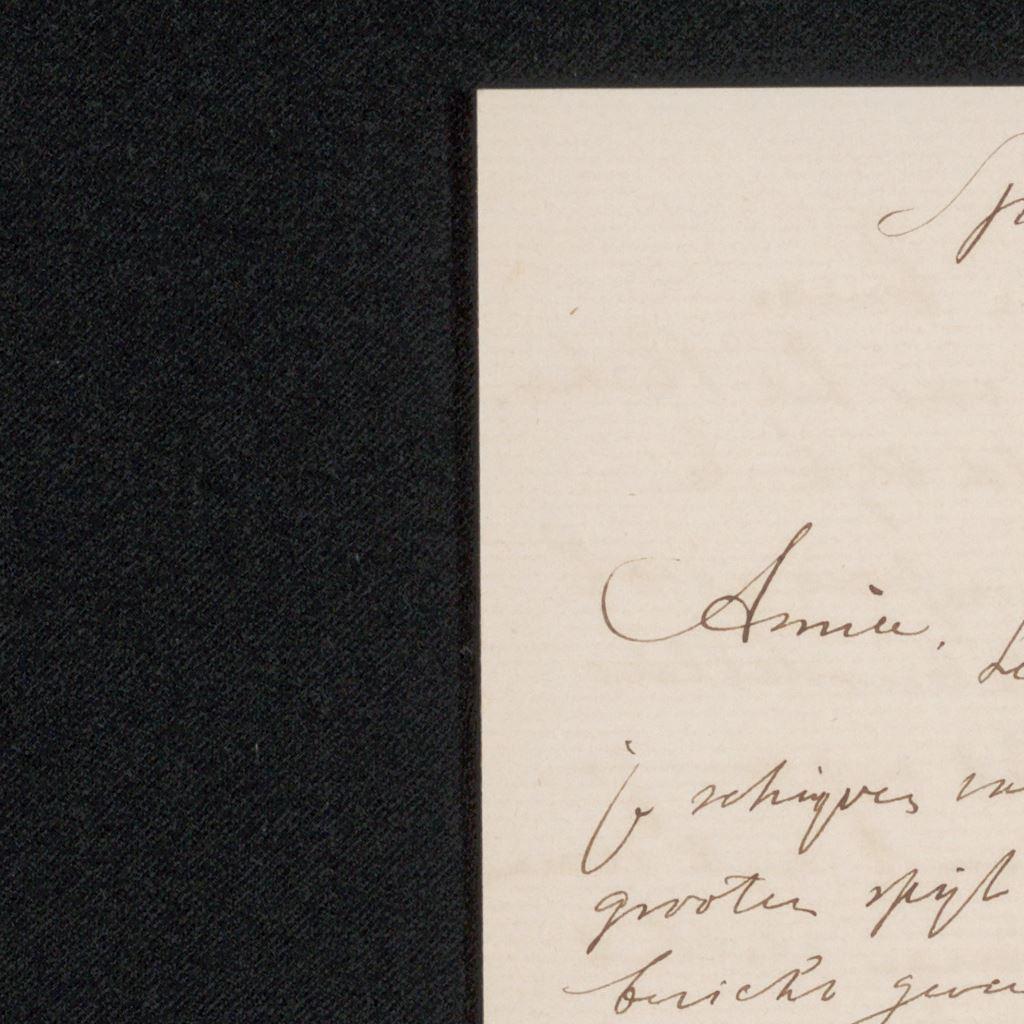 Amice,
je schrijven
grooten spijt
bericht geven